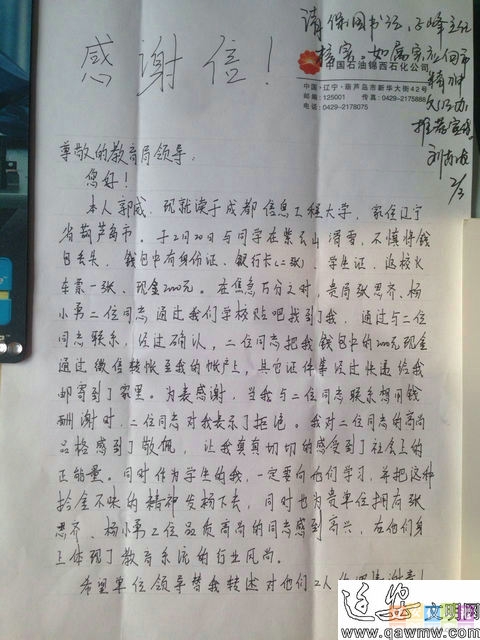 感谢信！
请保国书记、子峰主任
核实。如属实应向市
精神
文明办
推荐宣传
2/3
中国石油锦西石化公司
中国·辽宁·葫芦岛市新华大街42号
邮编：125001 传真：0429-2175888
电话：0429-2178075
尊敬的教育局领导：
您好！
本人郭威，现就读于成都信息工程大学，家住辽宁
省葫芦岛市。于2月20日与同学在紫云山滑雪，不慎将钱
包丢失，钱包中有身份证、银行卡（二张）、学生证、返校火
车票一张、现金2000元。在焦急万分之时，贵局张思齐、杨
小弟二位同志通过我们学校贴吧找到了我，通过与二位
同志联系，经过确认，二位同志把我钱包中的2000元现金
通过微信转帐至我的帐户上，其它证件等经过快递给我
邮寄到了家里。为表感谢，当我与二位同志联系想用钱
酬谢时，二位同志对我表示了拒绝。我对二位同志的高尚
品格感到了敬佩，让我真真切切的感受到了社会上的
正能量。同时作为学生的我，一定要向他们学习，并把这种
拾金不昧的精神发杨下去，同时也为贵单位拥有张
思齐、杨小弟二位品质高尚的同志感到高兴，在他们身
上体现了教育系统的行业风尚。
希望单位领导替我转述对他们2人的
文明网
www.qawmw.com